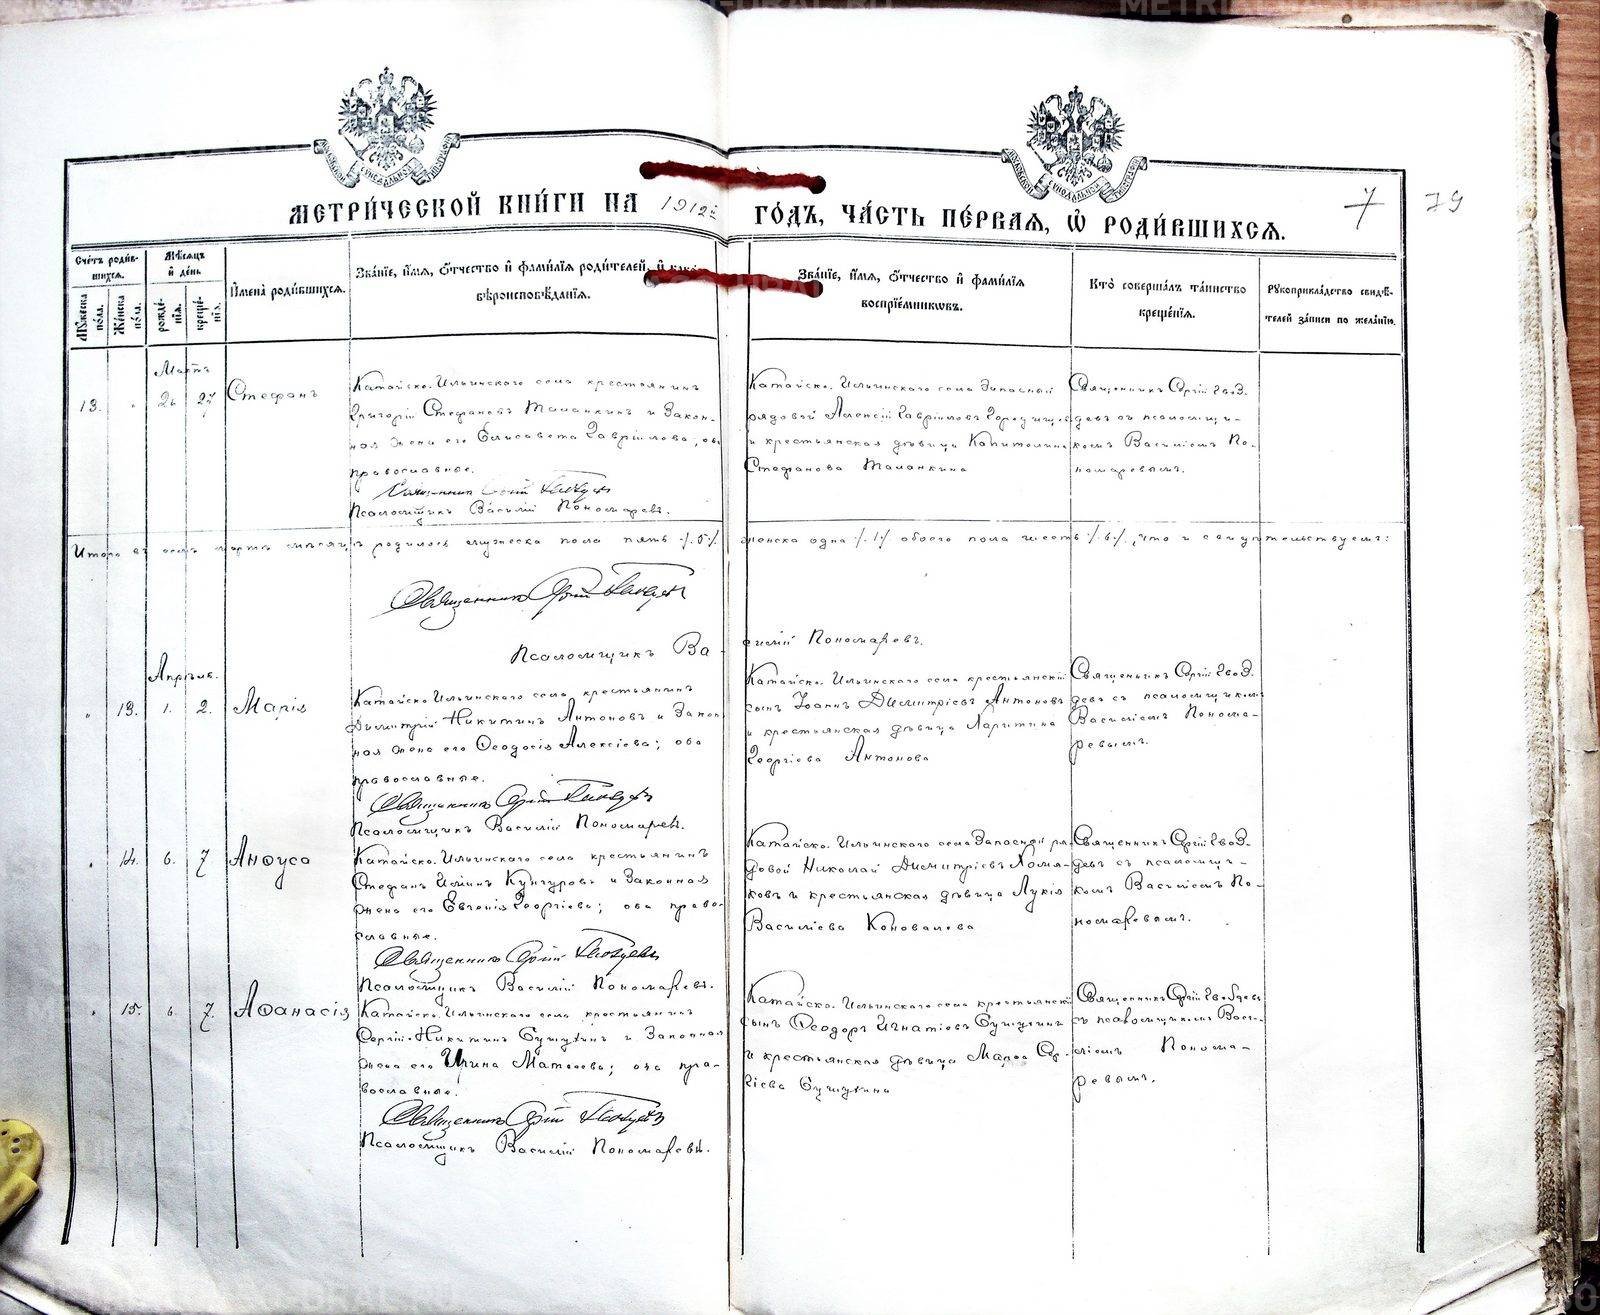 МЕТРИ́ЧЕСКОЙ КНИ́ГИ НА 1912й ГО́ДЪ, ЧА́СТЬ ПЕ́РВАЯ, Ѡ РОДИ́ВШИХСЯ.
7 79
Сче́тъ роди́в-
шихся.
Мѣ́сяцъ
и де́нь
Му́жеска по́ла.
Же́нска по́ла.
рожде́-
нія.
креще́-
нія.
Имена̀ роди́вшихся.
Зва́ніе, и́мя, о́тчество и фами́лія роди́телей, и како́
вѣроисповѣ́данія.
Зва́ніе, и́мя, о́тчество и фами́лія
воспріе́мниковъ.
Кто̀ соверша́лъ та́инство
креще́нія.
Рукоприкла́дство свидѣ́-
телей за́писи по жела́нію.
Мартъ
13. " 26 27 Стефанъ
Катайско-Ильинскаго села крестьянинъ
Григорій Стефановъ Таланкинъ и закон-
ная жена его Елисавета Гаврiилова; оба
православные.
Священникъ Сергій
Псаломщикъ Василій Пономаревъ.
Катайско-Ильинскаго села запасный
рядовой Алексій Гавріиловъ
и крестьянская дѣвица Капитолина
Стефанова Таланкина
Священникъ Сергій Гвоз-
девъ съ псаломщи-
комъ Василіемъ По-
номаревымъ.
Итого въ семъ мартѣ мѣсяцѣ родилось мужеска пола пять /.5./ женска одна /.1./ обоего пола шесть /.6./, что и свидѣтельствуемъ:
Священникъ Сергій Гвоздевъ
Псаломщикъ Василій Пономаревъ.
Апрѣль.
" 13. 1. 2. Марія
Катайско-Ильинскаго села крестьянинъ
Димитрій Никитинъ Антоновъ и закон-
ная жена его Ѳеодосія Алексіева; оба
православные.
Священникъ Сергій Гвоздевъ
Псаломщикъ Василій Пономаревъ.
Катайско-Ильинскаго села крестьянскій
сынъ Іоаннъ Димитріевъ Антоновъ
и крестьянская дѣвица
Георгіева Антонова
Священникъ Сергій Гвоз-
девъ съ псаломщикомъ
Василіемъ Понома-
ревымъ.
" 14. 6. 7 Анѳуса
Катайско-Ильинскаго села крестьянинъ
Стефанъ Кунгуровъ и законная
жена его Евгенія Георгіева; оба право-
славные.
Священникъ Сергій Гвоздевъ
Псаломщикъ Василій Пономаревъ.
Катайско-Ильинскаго села запасной ря-
довой Николай Димитріевъ Хомя-
ковъ и крестьянская дѣвица Лукія
Василіева Коновалова
Священникъ Сергій Гвоз-
девъ съ псаломщи-
комъ Василіемъ По-
номаревымъ.
" 15. 6. 7. Аѳанасія
Катайско-Ильинскаго села крестьянинъ
Сергій Никитинъ и законная
жена его Ирина Матѳеева; оба пра-
вославные.
Священникъ Сергій Гвоздевъ
Псаломщикъ Василій Пономаревъ.
Катайско-Ильинскаго села крестьянскій
сынъ Ѳеодоръ Игнатіевъ
и крестьянская дѣвица Марѳа Сер-
гіева
Священникъ Сергій Гвоздевъ
съ псаломщикомъ Васи-
ліемъ Понома-
ревымъ.